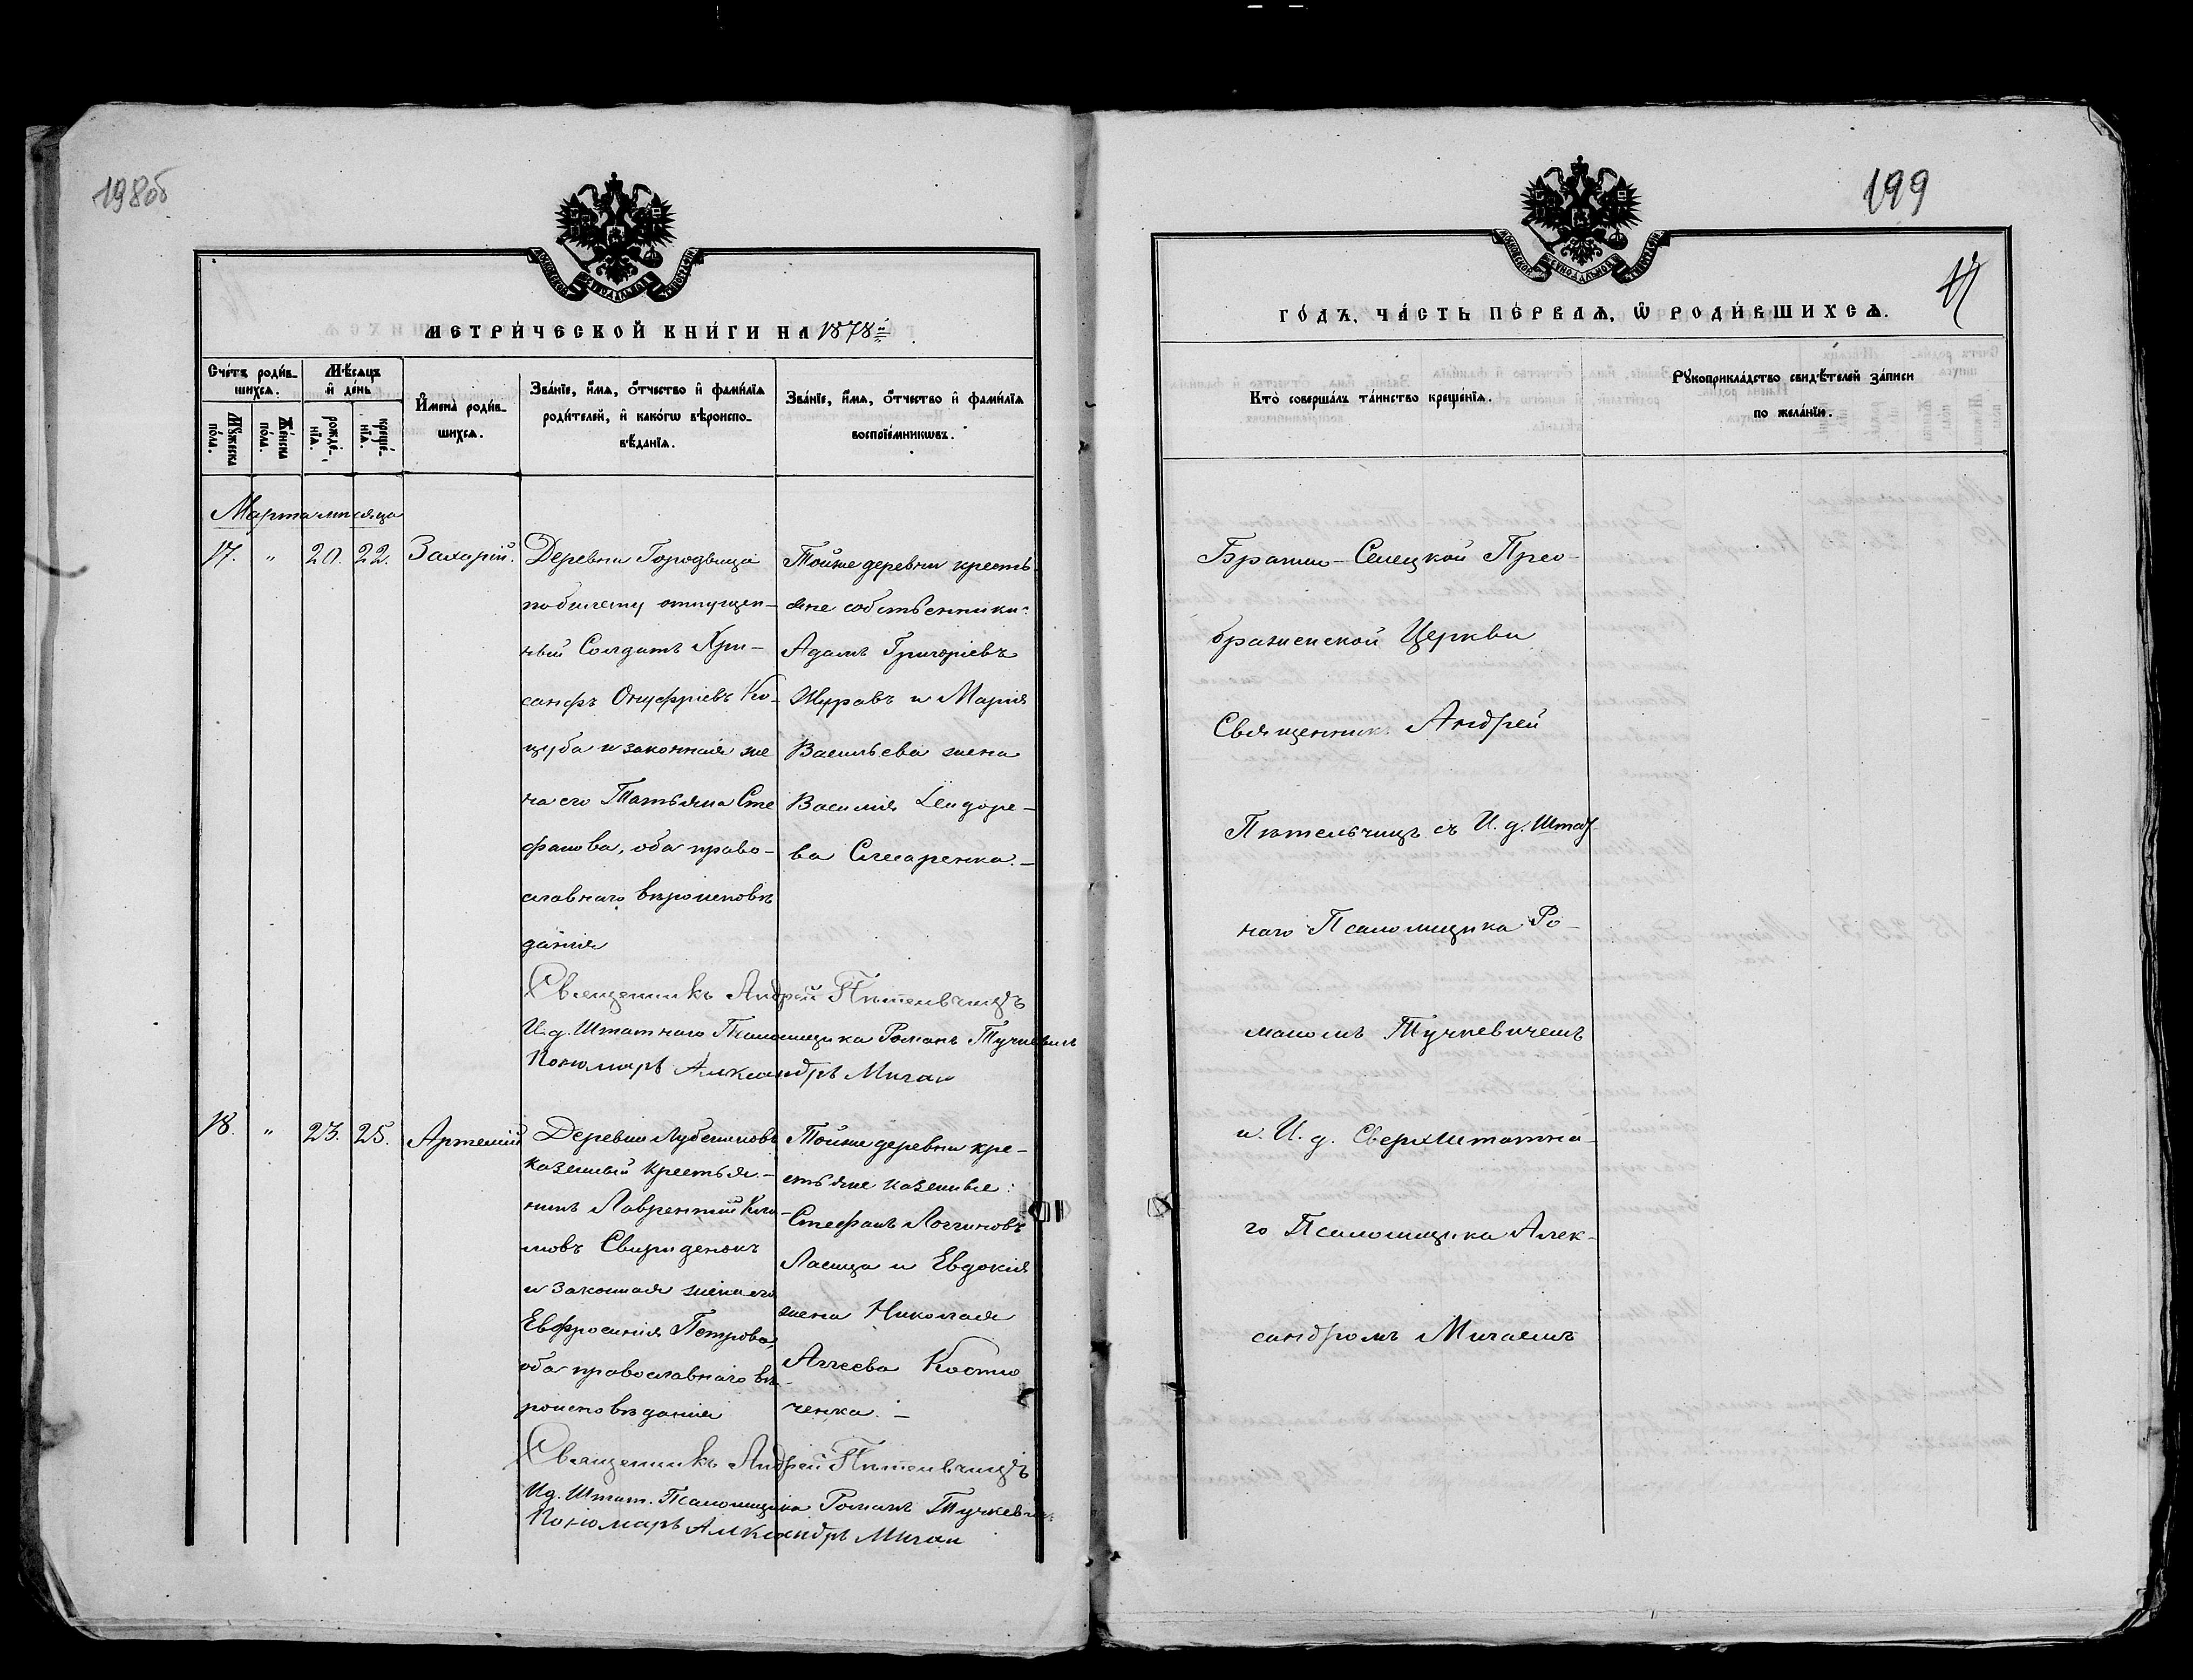 198об
МОСКОВСКОЙ СѴНОДАЛЬНОЙ ТИПОГРАФІИ
МЕТРИ́ЧЕСКОЙ КНИ́ГИ НА 1878й
Сче́тъ роди́в-
шихсѧ.
Мꙋ́жеска по́ла.
Же́нска по́ла.
Мѣ́сѧцъ
и҆ де́нь
рожде́-
нїѧ.
креще́-
нїѧ.
И҆мена̀ роди́в-
шихсѧ.
Зва́нїе, и҆́мѧ, ѻ҆́тчество и҆ фами́лїѧ
роди́телей, и҆ како́гѡ вѣроиспо-
вѣ́данїѧ.
Зва́нїе, и҆́мѧ, ѻ҆́тчество и҆ фами́лїѧ
воспрїе́мникѡвъ.
Марта мѣсяца
17. " 20. 22. Захарій.
Деревни Городвища
по билету отпущен-
ный Солдатъ Хри-
санфъ Онуфріевъ Ко-
цуба и законная же
на его Татьяна Сте
фанова, оба право-
славнаго вѣроисповѣ
данія
Тойже деревни кресть
яне собственники:
Адамъ Григоріевъ
Журавъ и Марія
Васильева жена
Василія Сидоре-
ва Слесаренка.-
Священникъ Андрей Пѣтельчицъ
И. д. Штатнаго Псаломщика Романъ Тучкевичъ
Пономарь Александръ Мигаи
18. " 23. 25. Артемій
Деревни
казенный крестья-
нинъ Лаврентій Кли-
мовъ Свириденокъ
и законная жена его
Евфросинія Петрова,
оба православнаго вѣ-
роисповѣданія
Тойже деревни кре-
стьяне казенные:
Стефанъ Логиновъ
Ласица и Евдокія
жена Николая
Аггеева Костю
ченка.-
Священникъ Андрей Пѣтельчицъ
И. д. Штат. Псаломщика Романъ Тучкевичъ
Пономарь Александръ Мигаи
199
МОСКОВСКОЙ СѴНОДАЛЬНОЙ ТИПОГРАФІИ
ГО́ДЪ, ЧА́СТЬ ПЕ́РВАѦ, Ѽ РОДИ́ВШИХСѦ.
Кто̀ соверша́лъ та́инство креще́нїѧ.
Рꙋкоприкла́дство свидѣ́телей за́писи
по жела́нїю.
Братно-Селецкой Прео-
браженской Церкви
Священникъ Андрей
Пѣтельчицъ съ И. д. Штат-
наго Псаломщика Ро-
маномъ Тучкевичемъ
и И. д. Сверхштатна-
го Псаломщика Алек-
сандромъ Мигаемъ